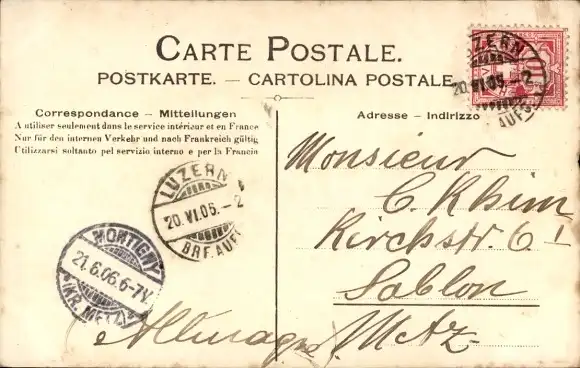 CARTE POSTALE.
POSTKARTE. — CARTOLINA POSTALE
Correspondance – Mitteilungen
A utiliser seulement dans le service intérieur et en France
Nur für den internen Verkehr und nach Frankreich gültig
Utilizzarsi soltanto pel servizio interno e per la Francia
Adresse – Indirizzo
LUZERN
20.VI.06.–2
BRF.AUFG
LUZERN
20.VI.06.–2
BRF.AUFG
MONTIGNY
21.6.06.6-7V.
(KR. METZ)
Monsieur
C. Khim
Kirchstr. 6
Sablon
Metz